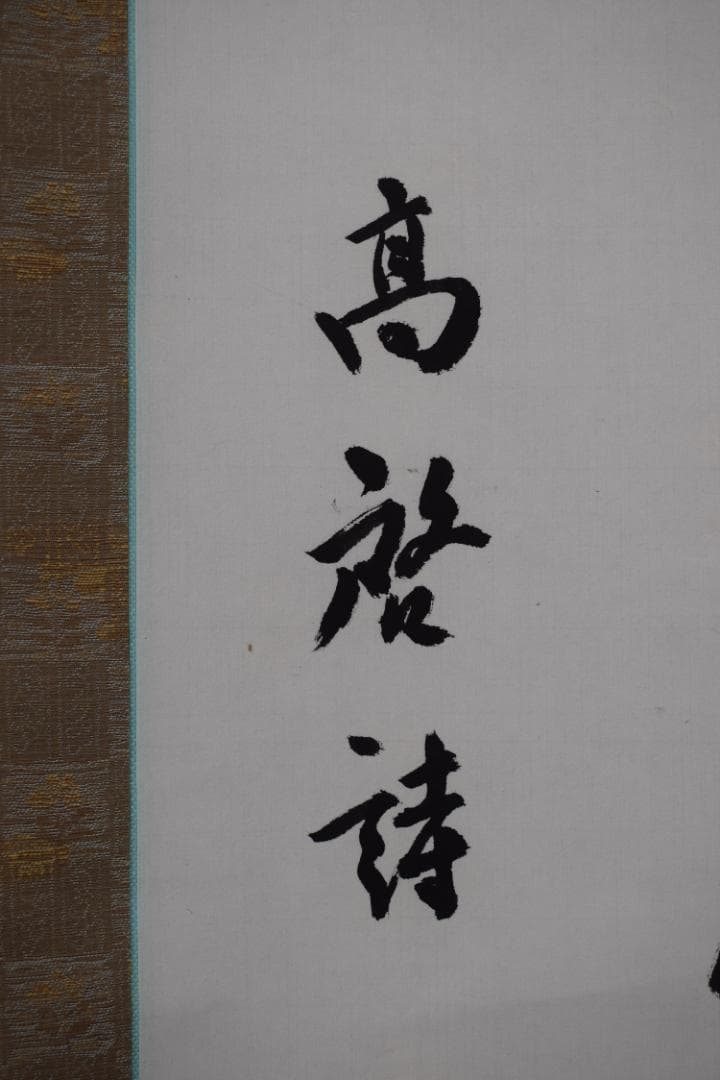 高啓詩